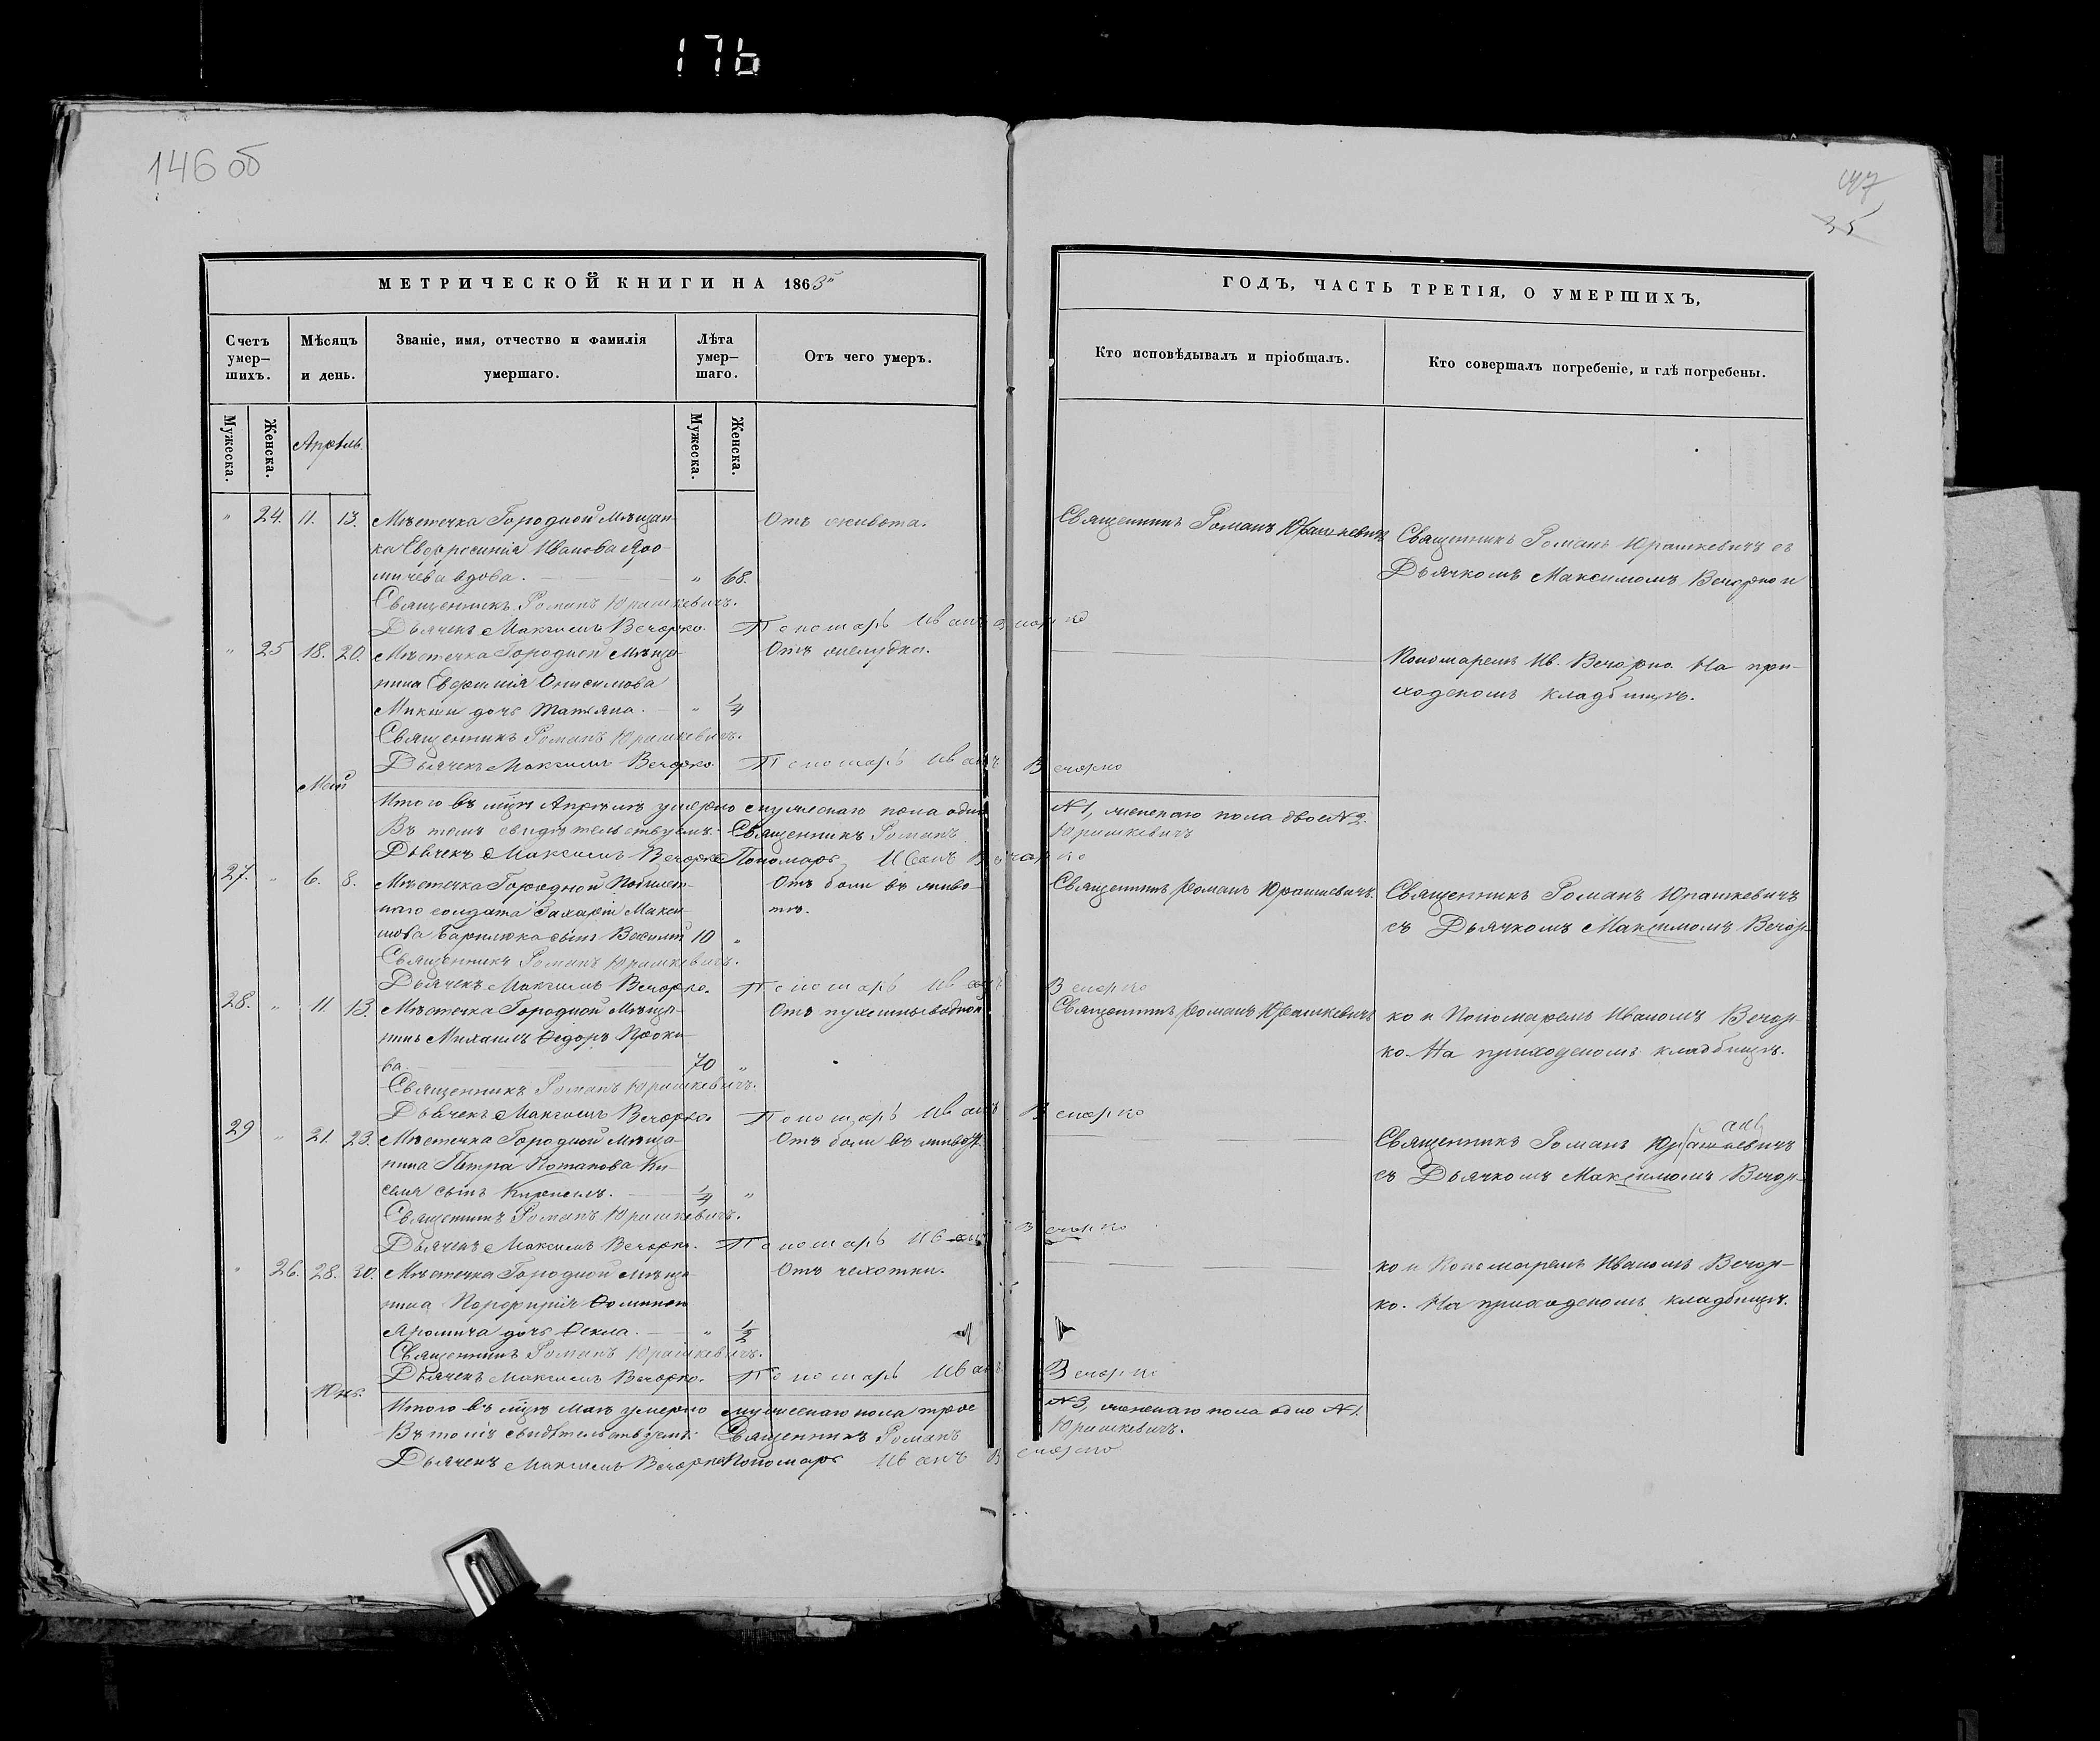 176
146 об
147
35
МЕТРИЧЕСКОЙ КНИГИ НА 1863й
Счетъ умер-шихъ.
Мѣсяцъ и день.
Званіе, имя, отчество и фамилія умершаго.
Лѣта умер-шаго.
Отъ чего умеръ.
Мужеска.
Женска.
Апрѣль.
Мужеска.
Женска.
" 24. 11. 13. Мѣстечка Городной Мѣщан- Отъ живота.
ка Евфросинія Иванова Яро-
мичева вдова. " 68.
Священникъ Романъ Юрашкевичъ.
Дьячекъ Максимъ Вечорко. Пономарь Иванъ Вечорко
" 25 18. 20. Мѣстечка Городной Мѣща- Отъ
нина Онисимова
дочь Татьяна. " 1/4
Священникъ Романъ Юрашкевичъ.
Дьячекъ Максимъ Вечорко. Пономарь Иванъ Вечорко
Май
Итого въ мцѣ Апрѣлѣ умерло мужескаго пола одинъ
№ 1, женскаго пола двое № 2.
Въ томъ свидѣтельствуемъ: Священникъ Романъ
Юрашкевичъ
Дьячекъ Максимъ Вечорко Пономарь Иванъ Вечорко
27. " 6. 8. Мѣстечка Городной Побилет- Отъ боли въ живо-
наго солдата Захарія Макси- тѣ.
мова сынъ Василій 10 "
Священникъ Романъ Юрашкевичъ.
Дьячекъ Максимъ Вечорко. Пономарь Иванъ Вечорко
28. " 11. 13. Мѣстечка Городной Мѣща- Отъ водной
нинъ Михаилъ Ѳедоръ
ва. 70 "
Священникъ Романъ Юрашкевичъ.
Дьячекъ Максимъ Вечорко. Пономарь Иванъ Вечорко
29 " 21. 23. Мѣстечка Городной Мѣща- Отъ боли въ животѣ.
нина Петра Потапова Ки-
селя сынъ 1/4 "
Священникъ Романъ Юрашкевичъ.
Дьячекъ Максимъ Вечорко. Пономарь Иванъ Вечорко
" 26. 28. 30. Мѣстечка Городной Мѣща- Отъ чахотки.
нина Порфирія
Яромича дочь Ѳекла. " 1/2
Священникъ Романъ Юрашкевичъ.
Дьячекъ Максимъ Вечорко. Пономарь Иванъ Вечорко
Юнь.
Итого въ мцѣ Маѣ умерло мужескаго пола трое
№ 3, женскаго пола одно № 1.
Въ томъ свидѣтельствуемъ: Священникъ Романъ
Юрашкевичъ.
Дьячекъ Максимъ Вечорко Пономарь Иванъ Вечорко
ГОДЪ, ЧАСТЬ ТРЕТІЯ, О УМЕРШИХЪ,
Кто исповѣдывалъ и пріобщалъ.
Кто совершалъ погребеніе, и гдѣ погребены.
Священникъ Романъ Юрашкевичъ
Священникъ Романъ Юрашкевичъ съ
Дьячкомъ Максимомъ Вечорко и
Пономаремъ Ив. Вечорко. На при-
ходскомъ кладбищѣ.
Священникъ Романъ Юрашкевичъ.
Священникъ Романъ Юрашкевичъ
съ Дьячкомъ Максимомъ Вечор-
Священникъ Романъ Юрашкевичъ
ко и Пономаремъ Иваномъ Вечор-
ко. На приходскомъ кладбищѣ.
Священникъ Романъ Юрашкевичъ
съ Дьячкомъ Максимомъ Вечор-
ко и Пономаремъ Иваномъ Вечор-
ко. На приходскомъ кладбищѣ.